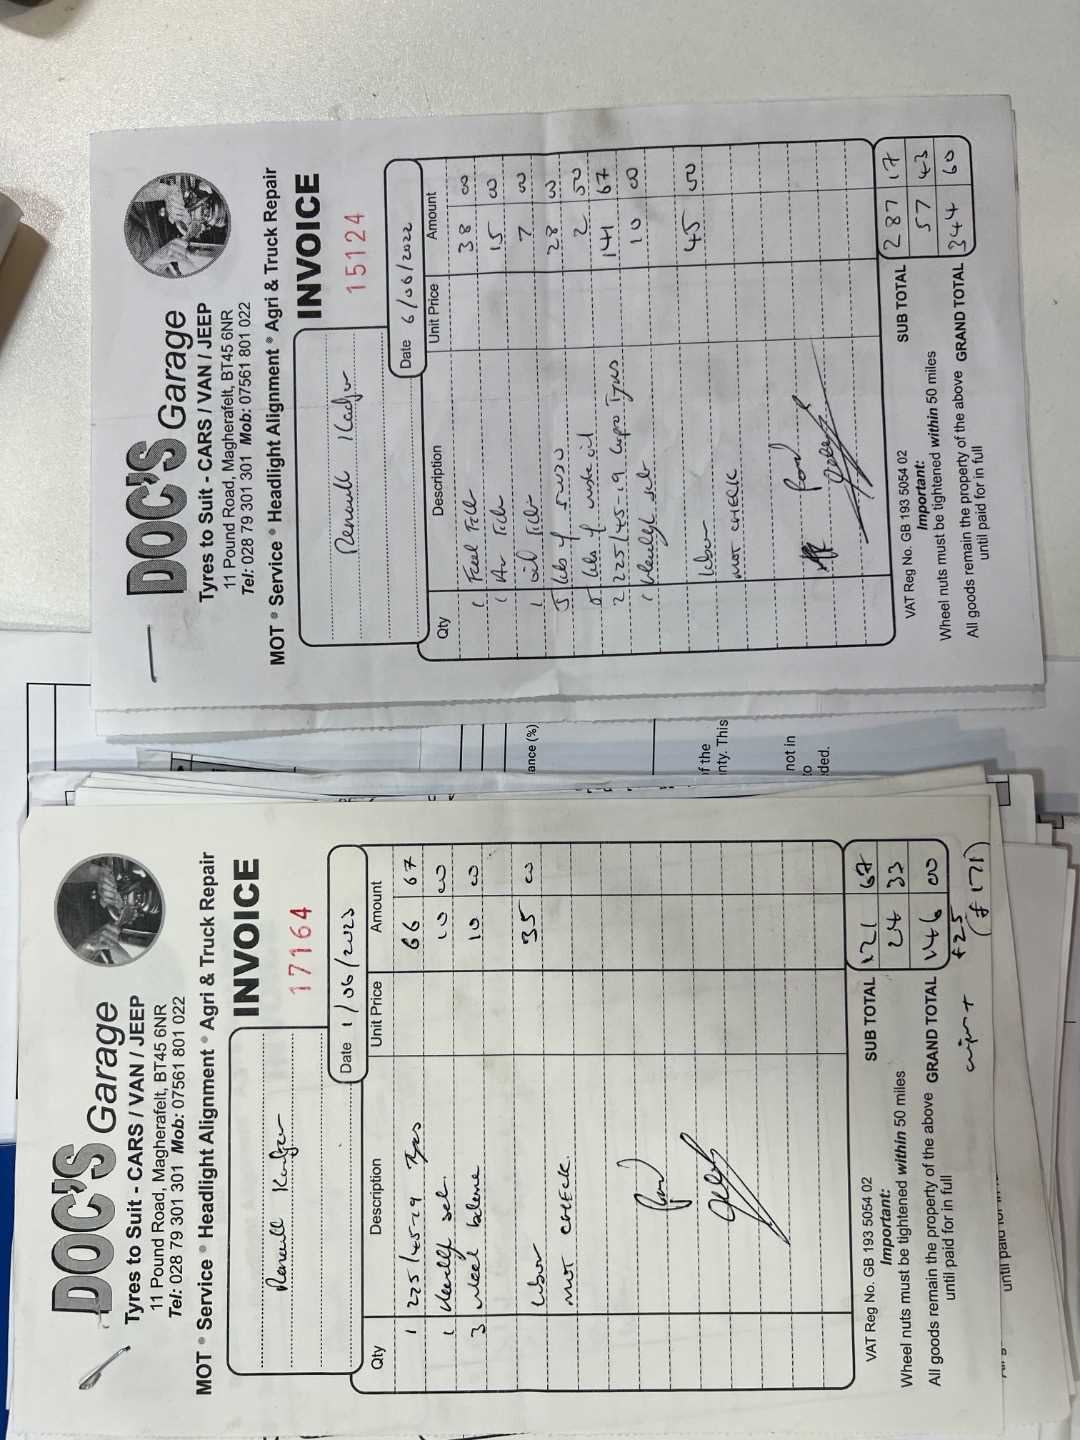 DOC'S Garage
Tyres to Suit - CARS / VAN / JEEP
11 Pound Road, Magherafelt, BT45 6NR
Tel: 028 79 301 301 Mob: 07561 801 022
MOT • Service • Headlight Alignment • Agri & Truck Repair
INVOICE
17164
Renault Kadjar
Date 1/06/2023
Qty Description Unit Price Amount
1 225/45-19 Tyres 66 67
1 10 00
3 wheel balance 10 00
labour 35 00
MOT CHECK.
Paid
VAT Reg No. GB 193 5054 02 SUB TOTAL 121 67
Important:
24 33
Wheel nuts must be tightened within 50 miles
All goods remain the property of the above GRAND TOTAL 146 00
until paid for in full
+ £25
(£171)
until paid for in
DOC'S Garage
Tyres to Suit - CARS / VAN / JEEP
11 Pound Road, Magherafelt, BT45 6NR
Tel: 028 79 301 301 Mob: 07561 801 022
MOT • Service • Headlight Alignment • Agri & Truck Repair
INVOICE
15124
Renault Kadjar
Date 6/06/2022
Qty Description Unit Price Amount
1 Fuel Filter 38 00
1 Air Filter 15 00
1 oil Filter 7 00
5 of 5W30 28 00
of 2 50
2 225/45-19 Tyres 141 67
1 10 00
labour 45 00
MOT CHECK
Paid
VAT Reg No. GB 193 5054 02 SUB TOTAL 287 17
Important:
57 43
Wheel nuts must be tightened within 50 miles
All goods remain the property of the above GRAND TOTAL 344 60
until paid for in full
ance (%)
of the
nty. This
not in
to
ded.